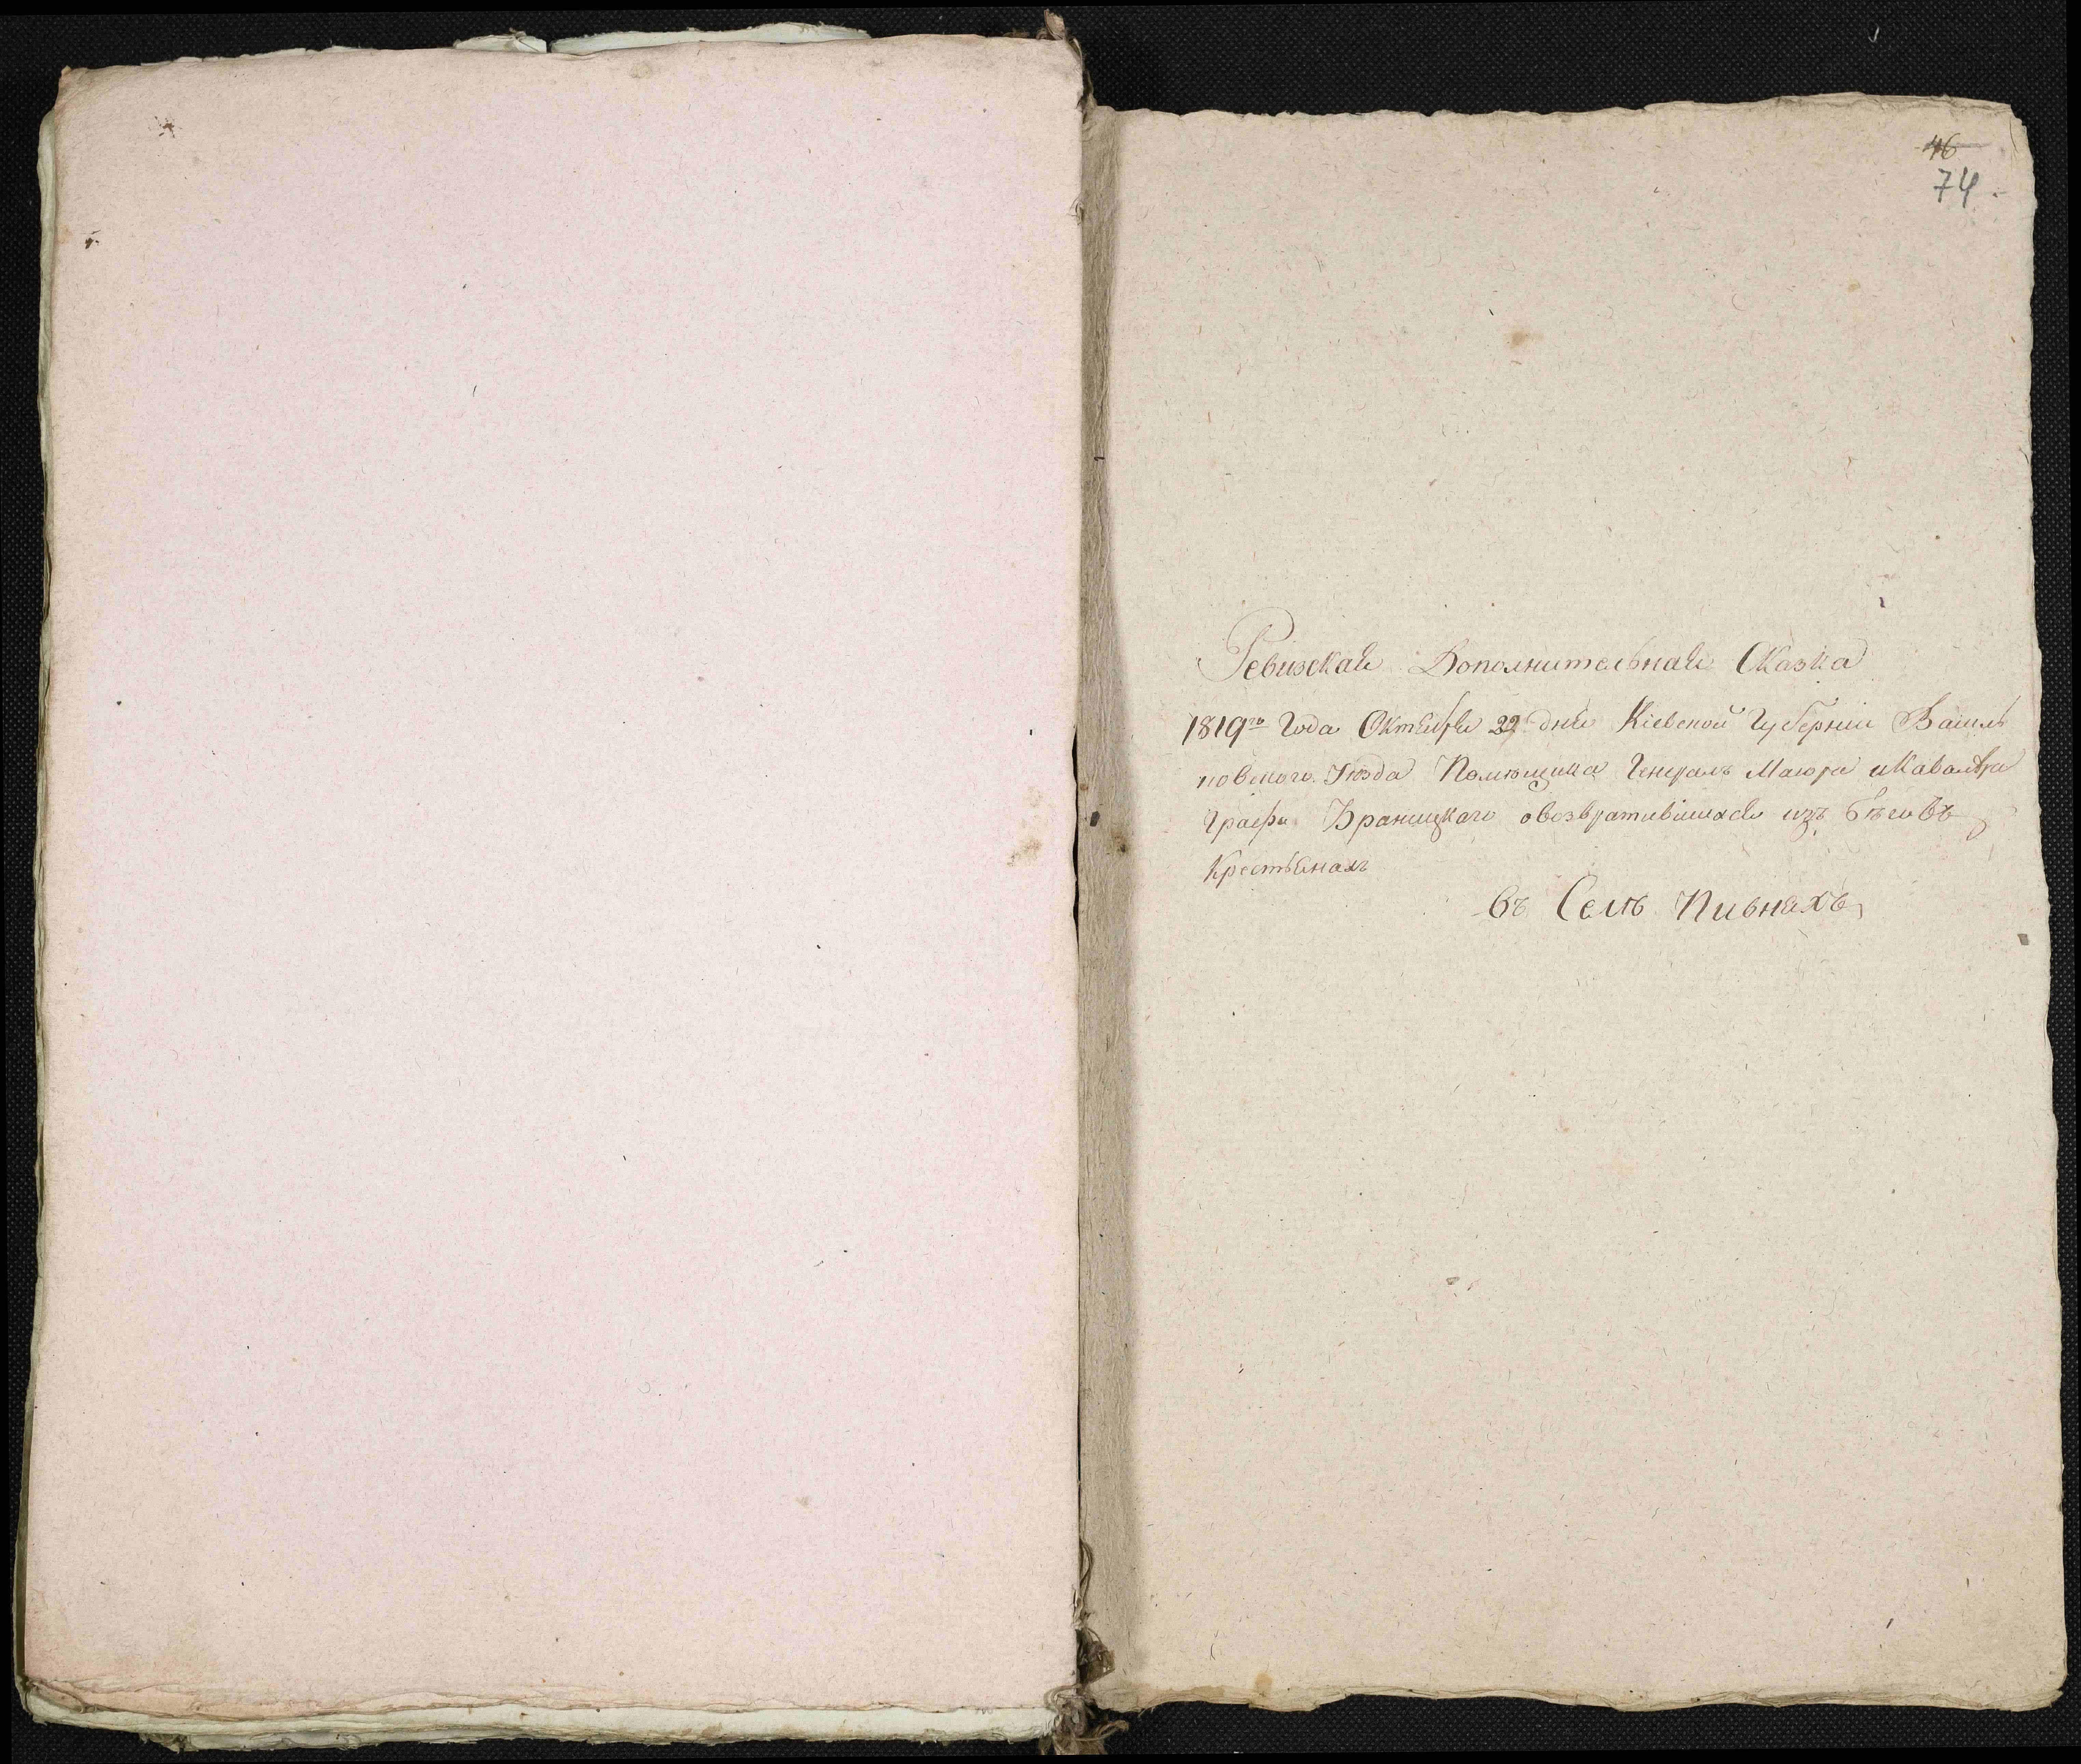 46
74
Ревизская Дополнительная Сказка
1819го Года Октября 22 дня Кіевской Губерніи Василь
ковского Уѣзда Помѣщика Генералъ Маіора и Кавалера
Графа Браницкаго о возвратившихся изъ бѣговъ
Крестьянахъ
въ Селѣ Пивняхъ